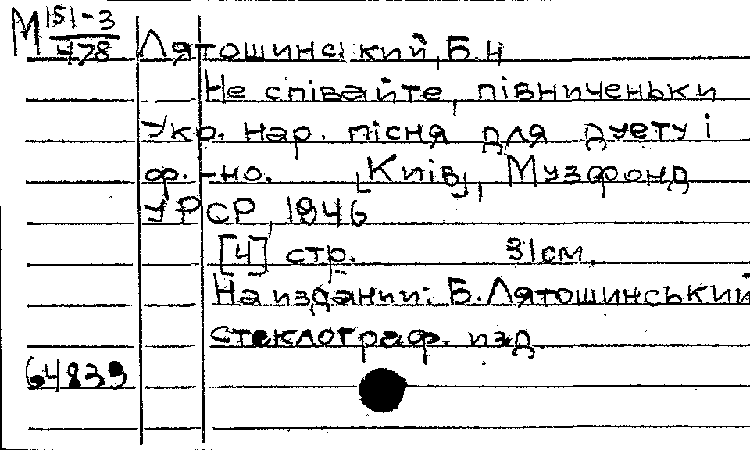 М 151-3
478
Лятошинський, Б.Н
Не співайте, півниченьки
Укр. нар. пісня для дуету і
ф.-но. [Київ], Музфонд
УРСР, 1946
[4] стр. 31см.
На издании: Б. Лятошинський
стеклограф. изд.
64839